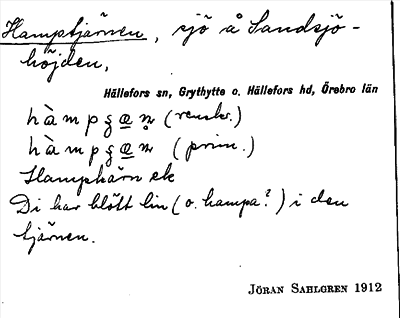 Hamptjärnen, sjö å Sandsjö-
höjden,
Hällefors sn, Grythytte o. Hällefors hd, Örebro län
(renskr.)
(prim.)
Hampkärn ek
Di har blött lin (o. hampa?) i den
tjärnen.
JÖRAN SAHLGREN 1912